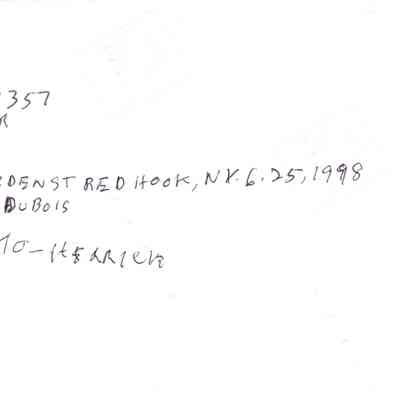 357
R
DEN ST RED HOOK, N.Y. 6.25, 1998
DUBOIS
TO - HERRICK